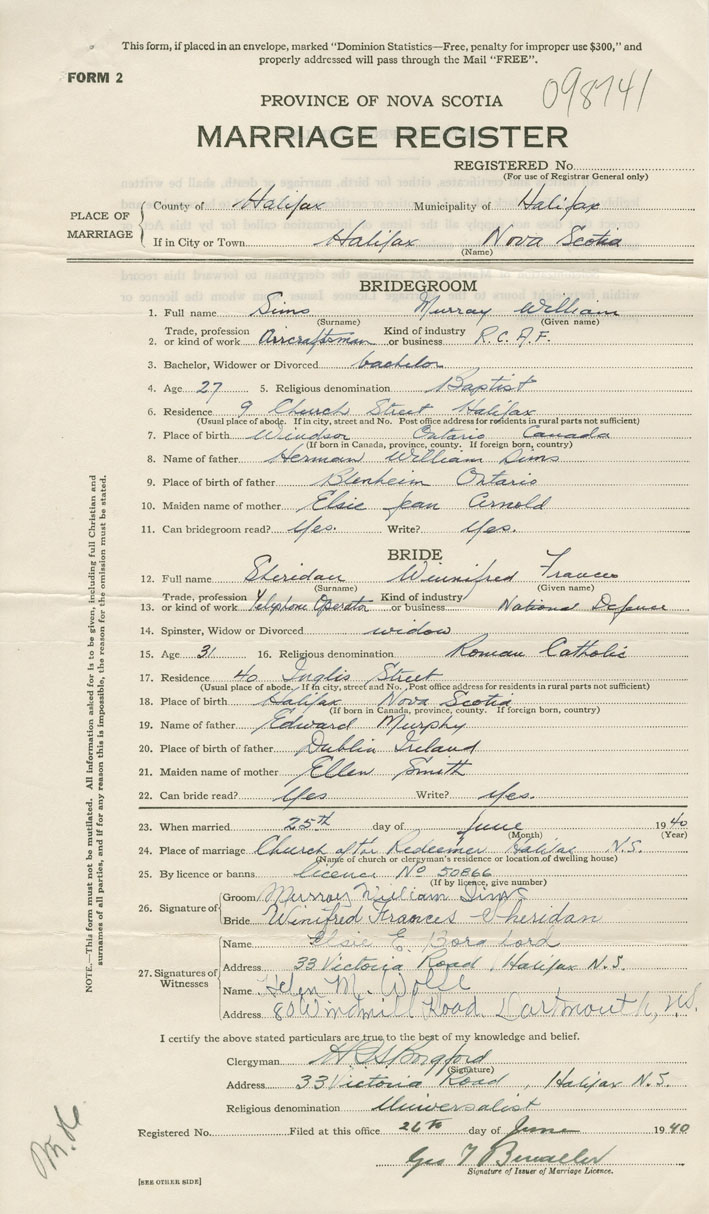 This form, if placed in an envelope, marked "Dominion Statistics—Free, penalty for improper use $300," and
properly addressed will pass through the Mail "FREE".
FORM 2
098741
PROVINCE OF NOVA SCOTIA
MARRIAGE REGISTER
REGISTERED No.
(For use of Registrar General only)
PLACE OF MARRIAGE
County of Halifax Municipality of Halifax
If in City or Town Halifax Nova Scotia
(Name)
BRIDEGROOM
1. Full name Sims Murray William
(Surname) (Given name)
2. Trade, profession or kind of work Aircraftsman Kind of industry or business R.C.A.F.
3. Bachelor, Widower or Divorced bachelor
4. Age 27 5. Religious denomination Baptist
6. Residence 9 Church Street Halifax
(Usual place of abode. If in city, street and No. Post office address for residents in rural parts not sufficient)
7. Place of birth Windsor Ontario Canada
(If born in Canada, province, county. If foreign born, country)
8. Name of father Herman William Sims
9. Place of birth of father Blenheim Ontario
10. Maiden name of mother Elsie Jean Arnold
11. Can bridegroom read? Yes. Write? Yes.
BRIDE
12. Full name Sheridan Winnifred Frances
(Surname) (Given name)
13. Trade, profession or kind of work Telephone Operator Kind of industry or business National Defense
14. Spinster, Widow or Divorced widow
15. Age 31 16. Religious denomination Roman Catholic
17. Residence 40 Inglis Street
(Usual place of abode. If in city, street and No. Post office address for residents in rural parts not sufficient)
18. Place of birth Halifax Nova Scotia
(If born in Canada, province, county. If foreign born, country)
19. Name of father Edward Murphy
20. Place of birth of father Dublin Ireland
21. Maiden name of mother Ellen Smith
22. Can bride read? Yes Write? Yes.
23. When married 25th day of June 1940
(Month) (Year)
24. Place of marriage Church of the Redeemer Halifax N.S.
(Name of church or clergyman's residence or location of dwelling house)
25. By licence or banns licence No 50866
(If by licence, give number)
26. Signature of
Groom Murray William Sims
Bride Winifred Frances Sheridan
27. Signatures of Witnesses
Name Elsie E.
Address 33 Victoria Road, Halifax N.S.
Name Helen M.
Address 80 Windmill Road Dartmouth, N.S.
I certify the above stated particulars are true to the best of my knowledge and belief.
Clergyman
(Signature)
Address 33 Victoria Road, Halifax N.S.
Religious denomination Universalist
Registered No. Filed at this office 26th day of June 1940
Geo T
Signature of Issuer of Marriage Licence.
[SEE OTHER SIDE]
NOTE.—This form must not be mutilated. All information asked for is to be given, including full Christian and
surnames of all parties, and if for any reason this is impossible, the reason for the omission must be stated.